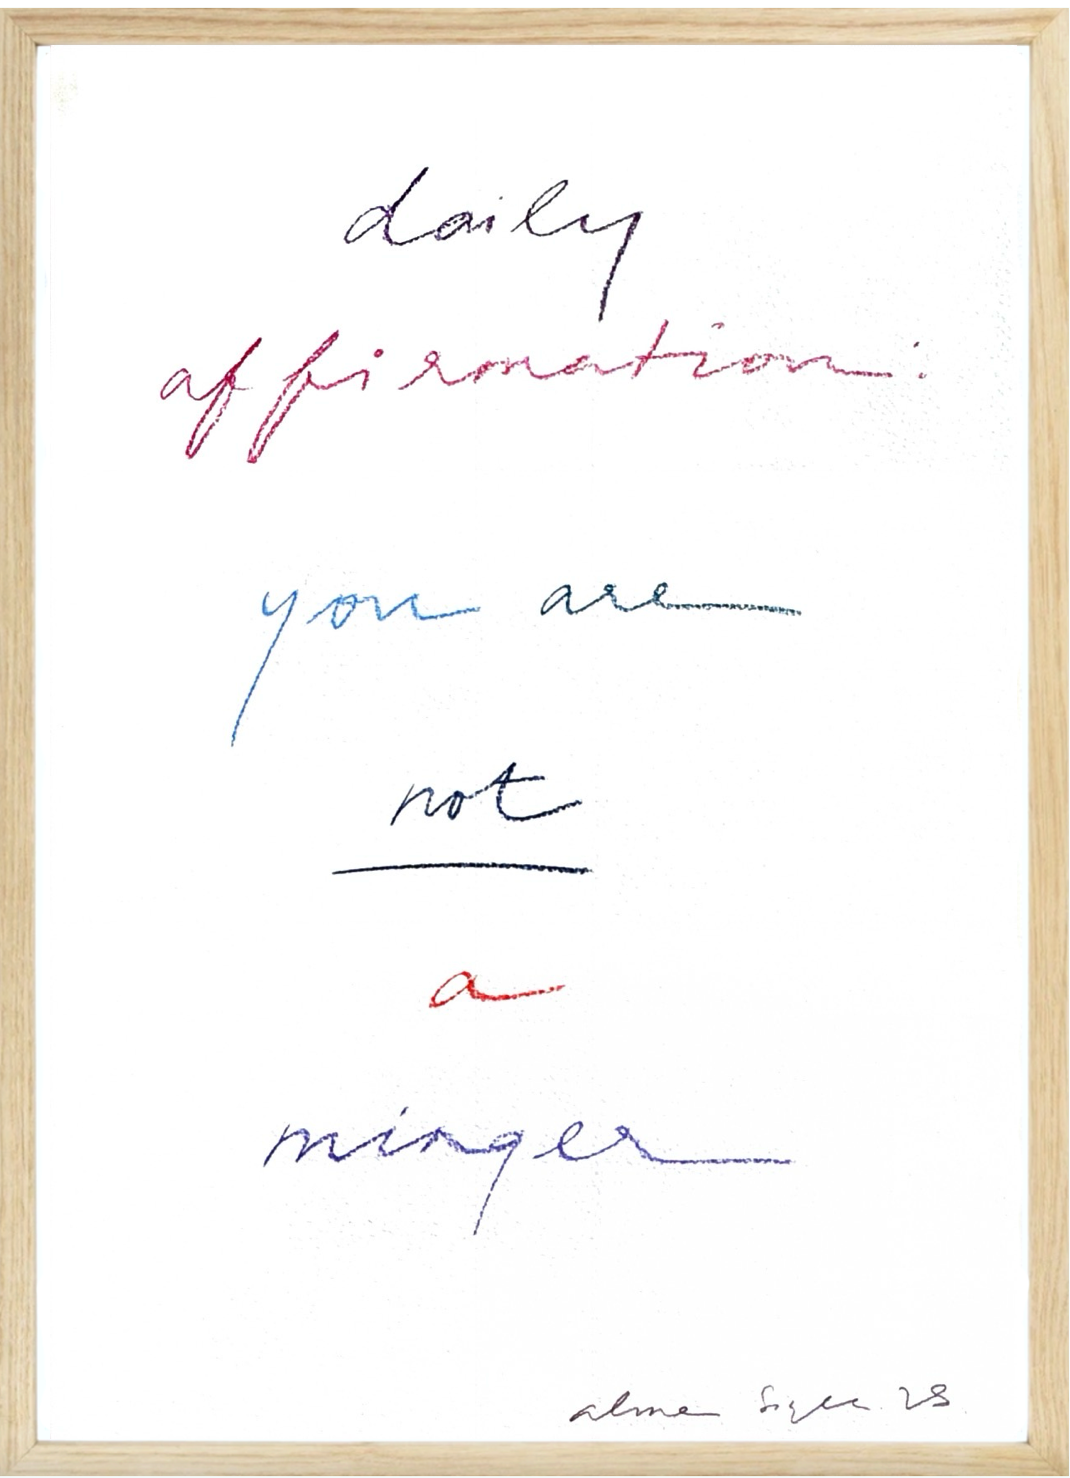 daily
affirmation:
you are
not
a
minger